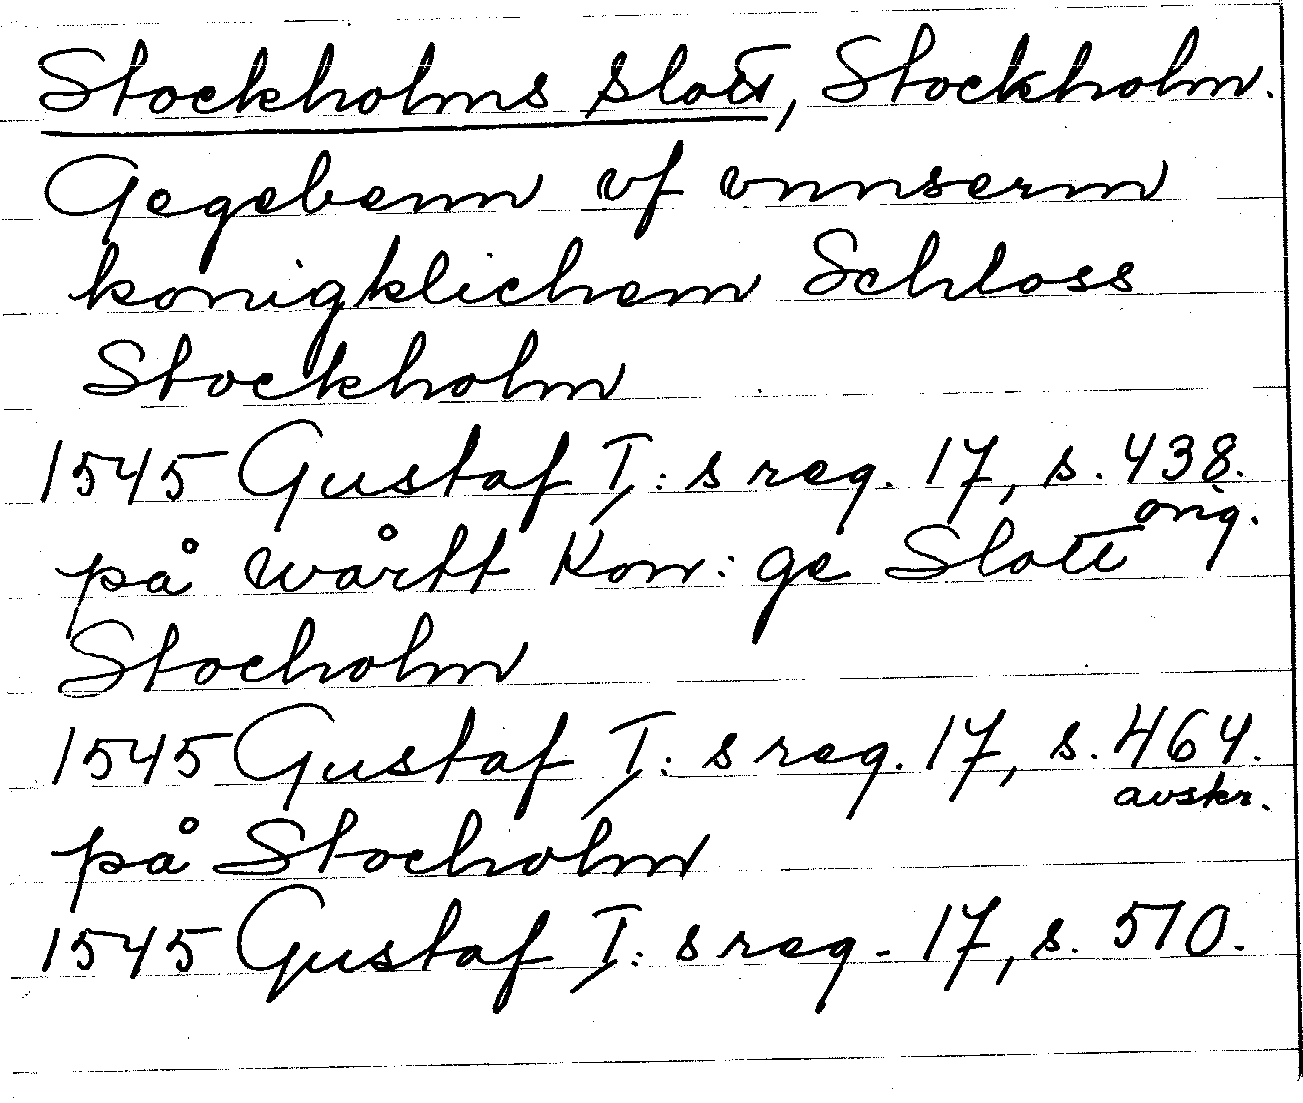 Stockholms slott, Stockholm.
Gegebenn vf vnnserm
konigklichem Schloss
Stockholm
1545 Gustaf I: s reg. 17, s. 438.
orig.
på wårtt Kon: ge Slott
Stocholm
1545 Gustaf I: s reg. 17, s. 464.
avskr.
på Stocholm
1545 Gustaf I: s reg. 17, s. 510.